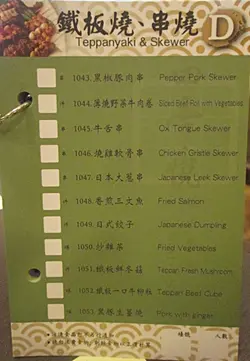 鐵板燒、串燒
Teppanyaki & Skewer
D
1043. 黑椒豚肉串 Pepper Pork Skewer
1044. 薄燒野菜牛肉卷 Sliced Beef Roll with Vegetables
1045. 牛舌串 Ox Tongue Skewer
1046. 燒雞軟骨串 Chicken Gristle Skewer
1047. 日本大葱串 Japanese Leek Skewer
1048. 香煎三文魚 Fried Salmon
1049. 日式餃子 Japanese Dumpling
1050. 炒雜菜 Fried Vegetables
1051. 鐵板鮮冬菇 Teppan Fresh Mushroom
1052. 鐵板一口牛柳粒 Teppan Beef Cube
1053. 黑豚生薑燒 Pork with ginger
檯號
人數